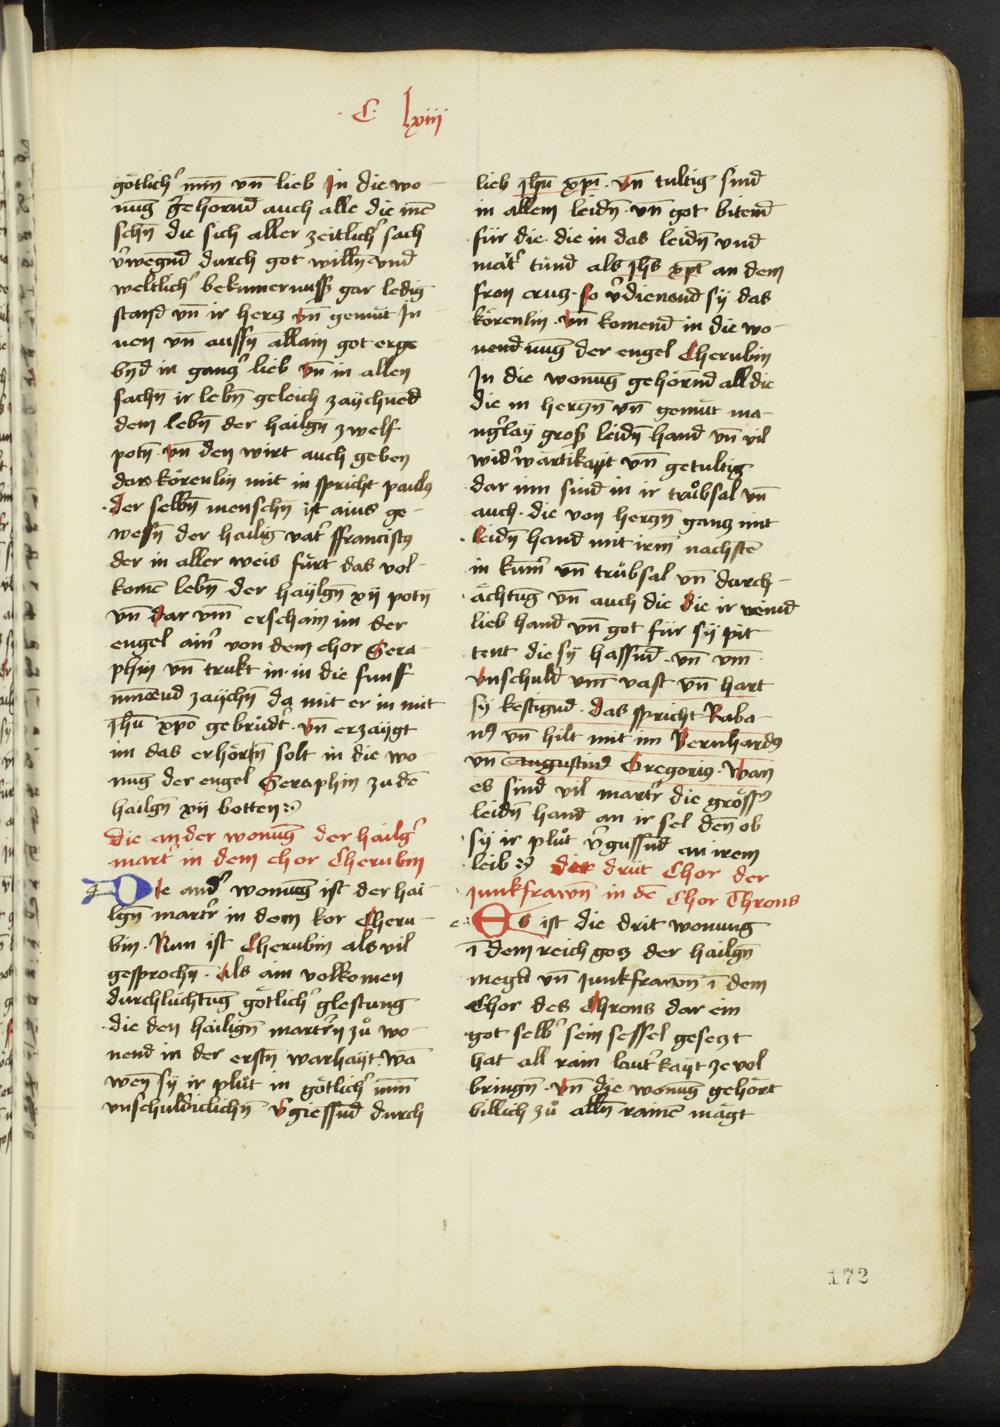 C lxviij
götlich' miñ vñ lieb Jn die wo-
nug gehorend auch alle die mē
schñ die sich aller zeitlich' sach
v'wegnd durch got willñ vnd
weltlich' bekumernuss gar ledig
stand vñ ir hercz vñ gemüt Jn
nen vñ aussñ allain got erge
bnd in gancz' lieb vñ in allen
sachñ ir lebñ geleich zaychned
dem lebñ der hailgñ zwelf
potñ vñ den wirt auch geben
das körenlin mit in spricht paulus
Der selbñ menschñ ist ains ge-
wesñ der hailig vat' ffranciscus
der in aller weis fürt das vol-
komē lebñ der haylgñ xij potñ
vñ dar vm̄ erschain im der
engel ain' von dem chor Sera
phin vñ trukt in in die funff
minnend zaychñ da mit er in mit
Jhū xpō gebrüdt' vñ erzaygt
im das er hörñ solt in die wo
nug der engel Seraphin zu dē
hailgñ xij botten
Die ander wonug der hailg'
mart' in dem chor Cherubin
Die and' wonung ist der hai
lgñ mart'r in dem kor Cheru-
bin Nun ist Cherubin als vil
gesprochñ Als ain volkomen
durchlüchtug götlich' glestung
die den hailigñ mart'rn zů wo-
nend in der erstñ warhayt wā
wen sy ir plůt in götlich' min
vnschuldiclichñ v'giessnd durch
lieb jhū xpi vñ tultig sind
in allem leidñ vñ got bitend
für die die in das leidñ vnd
mat' tünd als jhs xpc an dem
fron crucz so v'dienend sy das
körenlin vñ komend in die wo
nend nug der engel Cherubin
Jn die wonug gehörnd all die
die in herczñ vñ gemüt ma-
ng'lay gross leidñ hand vñ vil
wid'wärtikayt vñ getultig
dar inn sind in ir trůbsal vñ
auch die von herczñ gancz mit
leidñ hand mit irm nachstē
in kum' vñ trübsal vñ durch-
ächtug vñ auch die die ir veind
lieb hand vñ got für sy pit
tent die sy hassnd vñ vm
vnschuld vm vast vñ hart
sy kestignd Das spricht Raba-
nus vñ hilt mit im Bernhardus
vñ Augustinus Gregorius Wan
es sind vil mart'r die gröss'
leidñ hand an ir sel deñ ob
sy ir plůt v'gussnd an irem
leib der drit Chor der
junkfrawñ in dē Chor Throns
Es ist die drit wonung
ī dem reich gocz der hailgñ
megt vñ junkfrawñ ī dem
Chor des throns dar ein
got selb' sein sessel geseczt
hat all rain laut'kayt ze vol
bringñ vñ die wonug gehört
billich zů allñ rainē mägt
172